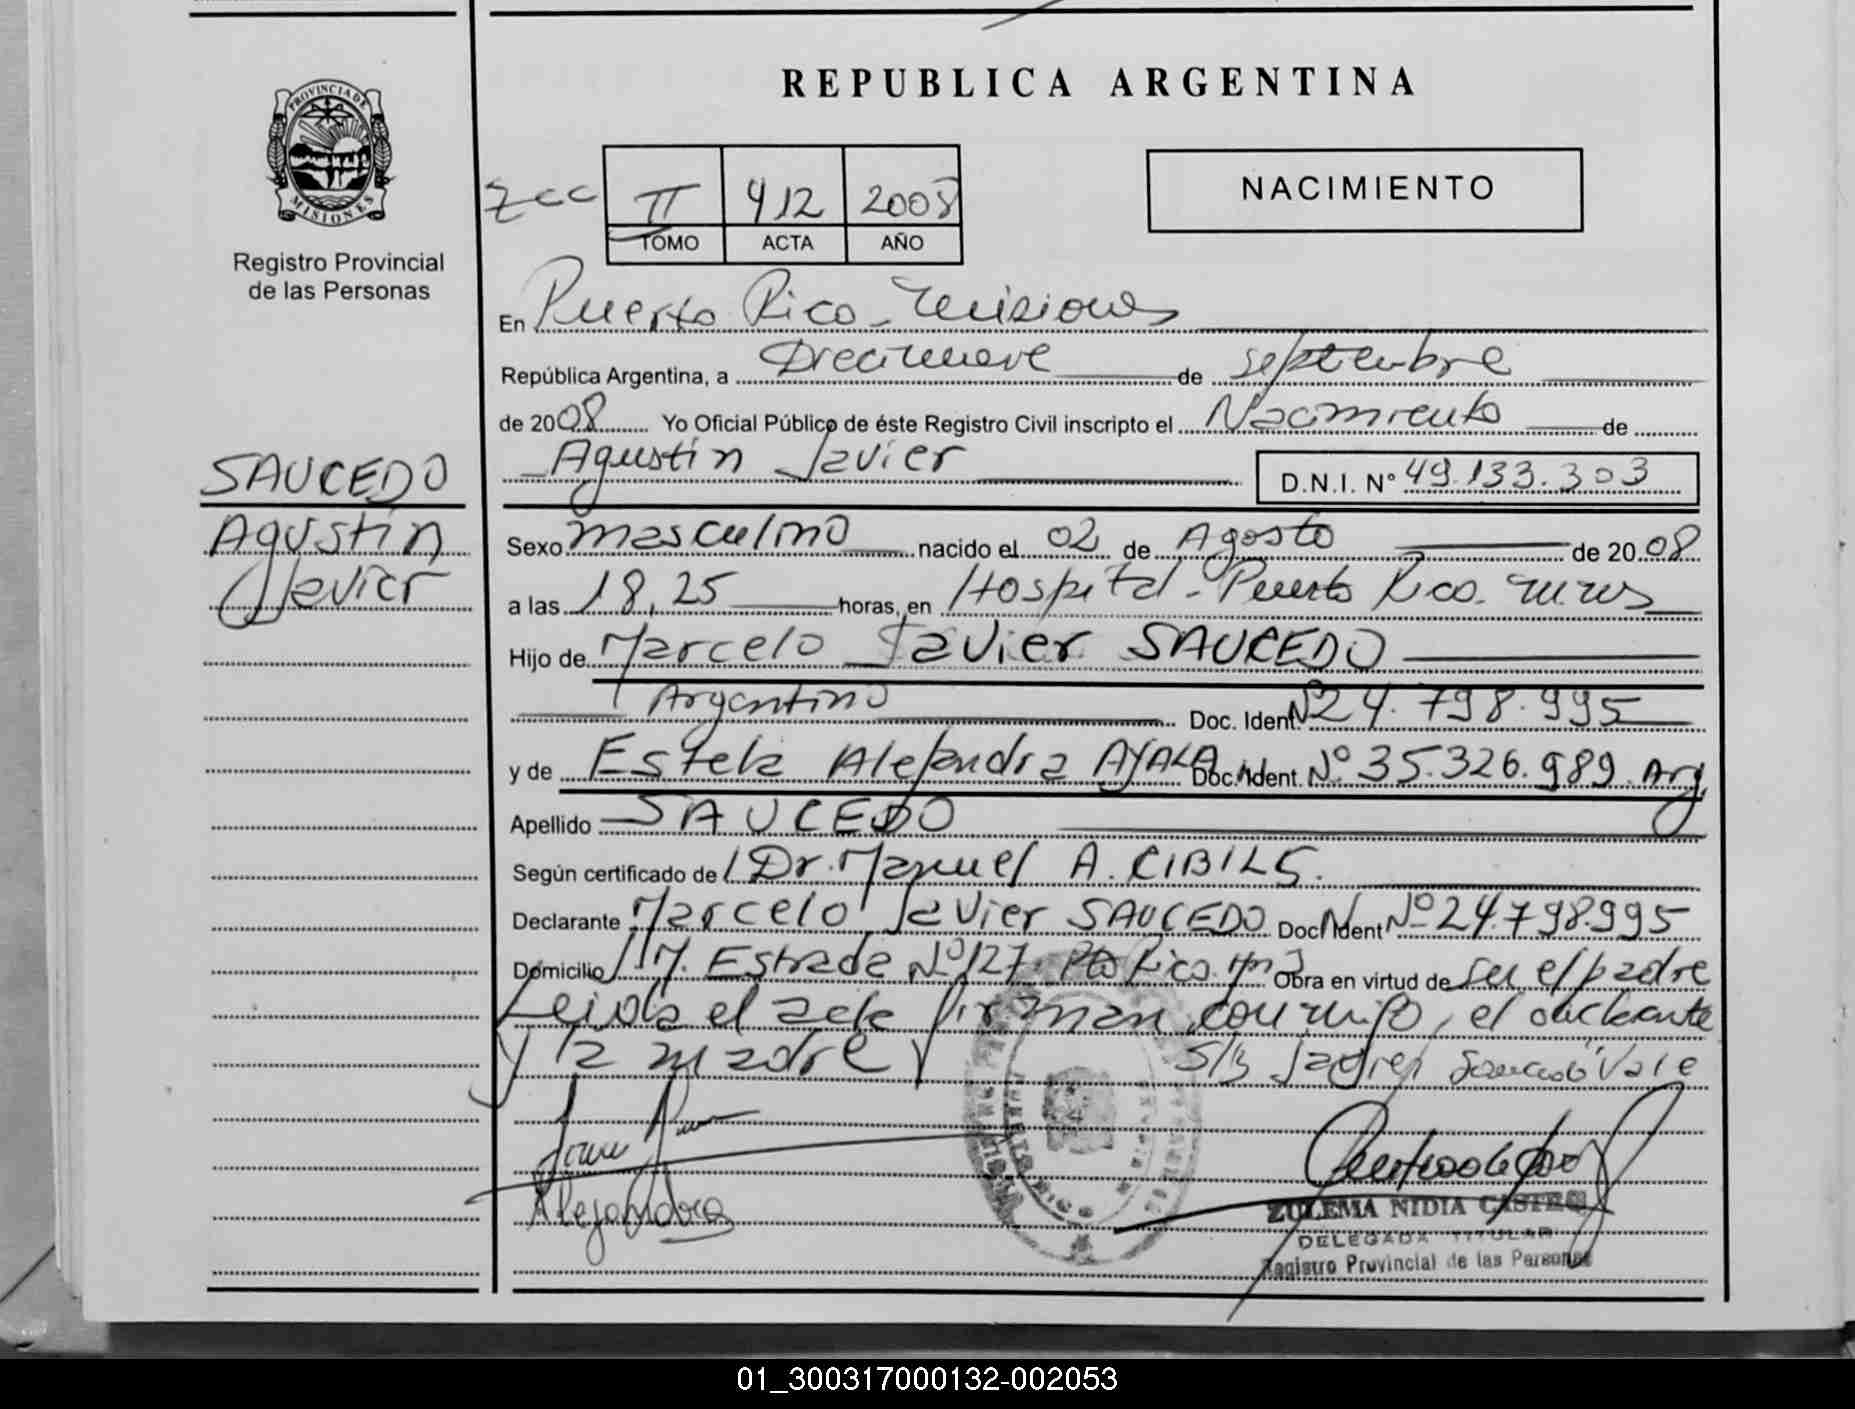 REPUBLICA ARGENTINA
PROVINCIA DE
MISIONES
Registro Provincial
de las Personas
II 412 2008
TOMO ACTA AÑO
NACIMIENTO
En Puerto Rico - Misiones
República Argentina, a Diecinueve de septiembre
de 2008 Yo Oficial Público de éste Registro Civil inscripto el Nacimiento de
Agustín Javier
D.N.I. N° 49.133.303
SAUCEDO
Agustín
Javier
Sexo masculino nacido el 02 de Agosto de 2008
a las 18,25 horas, en Hospital - Puerto Rico.
Hijo de Marcelo Javier SAUCEDO
Argentino Doc. Ident. Nº 24.798.995
y de Estela Alejandra AYALA Doc. Ident. Nº 35.326.989. Arg
Apellido SAUCEDO
Según certificado de Dr. Manuel A. CIBILS.
Declarante Marcelo Javier SAUCEDO Doc. Ident Nº 24.798.995
Domicilio J. M. Estrada Nº 127. Pto Rico. Mnes Obra en virtud de ser el padre
Leida el acta firman conmigo, el declarante
y la madre S/b Javier Saucedo Vale
Alejandra
ZULEMA NIDIA CASTRO
DELEGADA TITULAR
Registro Provincial de las Personas
01_300317000132-002053